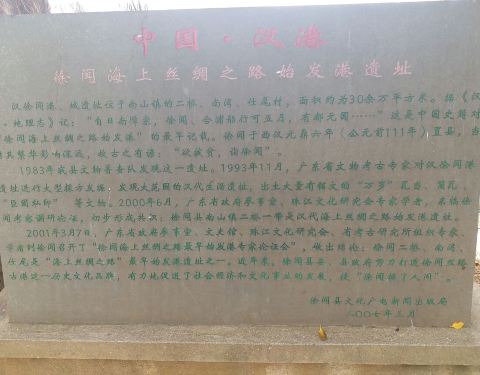 中国·汉港
徐闻海上丝绸之路始发港遗址
汉徐闻港、城遗址位于南山镇的二桥、南湾、仕尾村，面积约为30余万平方米。据《汉
·地理志》记："自日南障塞，徐闻、合浦船行可五月，有都元国……"这是中国史籍对
"徐闻海上丝绸之路始发港"的最早记载。徐闻于西汉元鼎六年（公元前111年）置县，当
其繁华影响深远，故古之有谚："欲拔贫，诣徐闻"。
1983年我县文物普查队发现这一遗址。1993年11月，广东省文物考古专家对汉徐闻港
遗址进行大型探方发掘，发现大范围的汉代建港遗址，出土大量有铭文的"万岁"瓦当、筒瓦、
"臣固私印"等文物。2000年6月，广东省政府参事室、珠江文化研究会专家学者，亲临徐
闻考察调研论证，初步形成共识：徐闻县南山镇二桥一带是汉代海上丝绸之路始发港遗址。
2001年3月7日，广东省政府参事室、文史馆、珠江文化研究会、省考古研究所组织专家
学者到徐闻召开了"徐闻海上丝绸之路最早始发港专家论证会"，做出结论：徐闻二桥、南湾、
仕尾是"海上丝绸之路"最早始发港遗址之一。近年来，徐闻县委、县政府努力打造徐闻丝路
古港这一历史文化品牌，有力地促进了社会经济和文化事业的发展，使"徐闻换了人间"。
徐闻县文化广电新闻出版局
二00七年三月